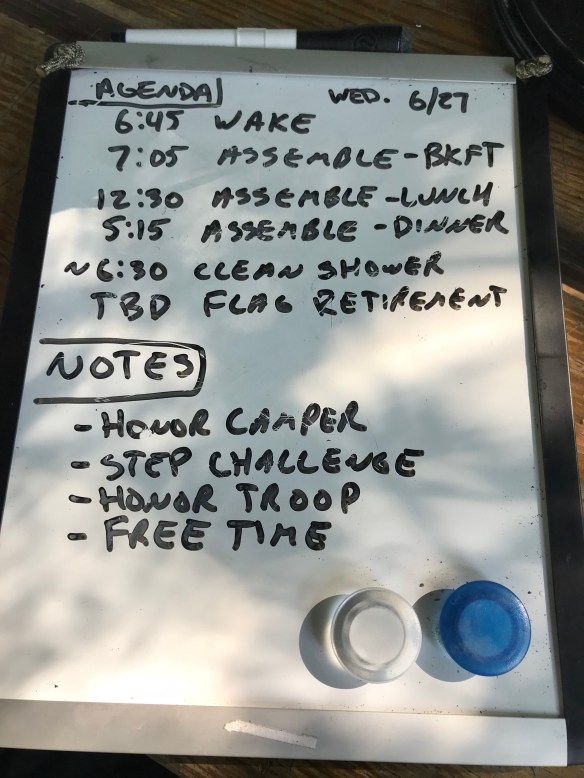 AGENDA WED. 6/27
6:45 WAKE
7:05 ASSEMBLE-BKFT
12:30 ASSEMBLE-LUNCH
5:15 ASSEMBLE-DINNER
~6:30 CLEAN SHOWER
TBD FLAG RETIREMENT
NOTES
- HONOR CAMPER
- STEP CHALLENGE
- HONOR TROOP
- FREE TIME